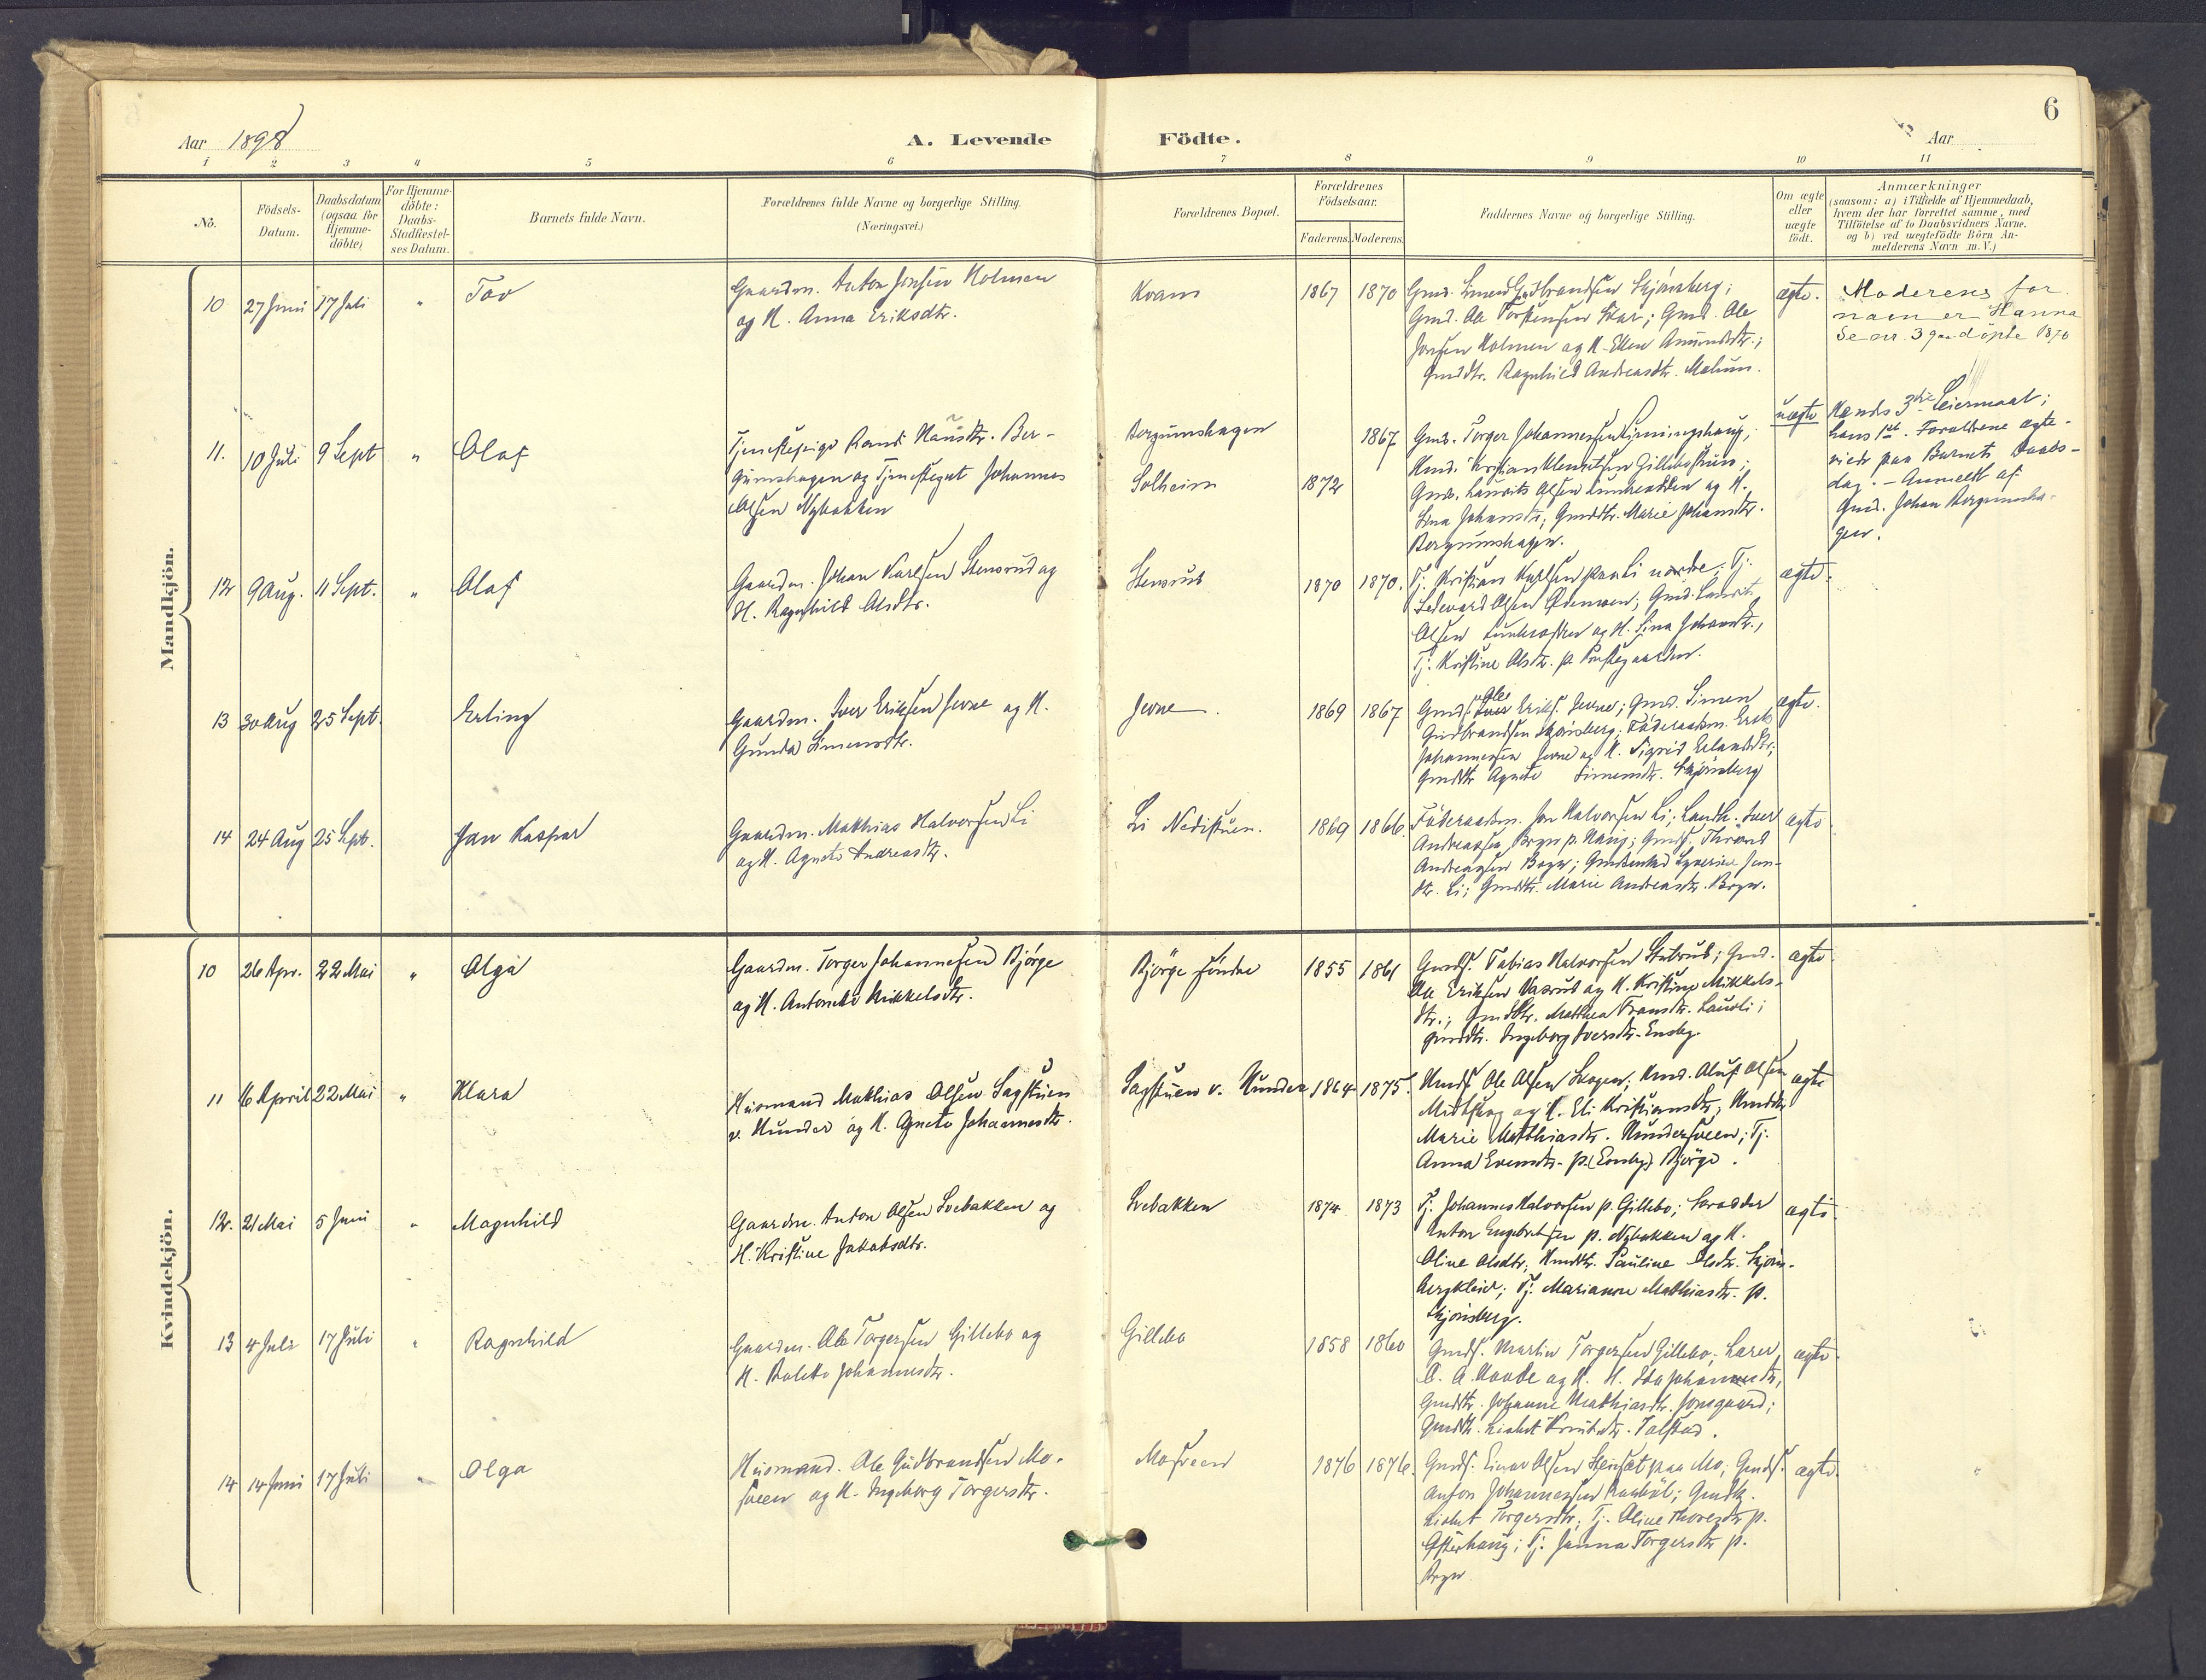 6
Aar 1898
A. Levende Födte.
Aar
1 2 3 4 5 6 7 8 9 10 11
No.
Födsels-
Datum.
Daabsdatum
(ogsaa for
Hjemme-
döbte)
For Hjemme-
döbte:
Daabs-
Stadfæstel-
ses Datum.
Barnets fulde Navn.
Forældrenes fulde Navne og borgerlige Stilling.
(Næringsvei.)
Forældrenes Bopæl.
Forældrenes
Födselsaar.
Faderens. Moderens.
Faddernes Navne og borgerlige Stilling.
Om ægte
eller
uægte
födt.
Anmærkninger
(saasom: a) i Tilfælde af Hjemmedaab,
hvem der har forrettet samme, med
Tilföielse af to Daabsvidners Navne.
og b) ved uægtefödte Börn An-
melderens Navn m. V.)
Mandkjön.
10 27 Juni 17 Juli " Tov
Gaardm. Anton Jonsen Holmen
og H. Anna Eriksdtr.
Kvam
1867 1870
Gmd. Simen Gudbrandsen Skjønsberg;
Gmd. Ole Torstensen; Gmd. Ole
Jonsen Holmen og H. Ellen Amundsdtr.;
Gmddtr. Ragnhild Andreasdtr. Melum.
ægte.
Moderens for
navn er Hanna
Se nr. 39 döpte 1870
11. 10 Juli 9 Sept " Olaf
Tjenestepige Randi Hansdtr. Ber-
gumshagen og Tjenestegut Johannes
Olsen Nybakken
Bergumshagen
Solheim
1867
1872
Gmd. Torger Johannessen;
Hmd. Kristian Klemetsen Gillebostuen;
Gmd. Laurits Olsen og H.
Lina Johansdtr; Gmddtr. Marie Johansdtr.
Bergumshagen.
uægte
Hends 3die Leiermaal;
hans 1ste. Forældrene ægte-
viede paa Barnets Daabs-
dag. – Anmeldt af
Gmd. Johan Bergumsha-
gen.
12 9 Aug. 11 Sept. " Olaf
Gaardm. Johan Karlsen Stensrud og
H. Ragnhild Olsdtr.
Stensrud
1870 1870.
Tj. Kristian Karlsen paa Li nordre; Tj.
Edevard Olsen Ødemoen; Gmd. Laurits
Olsen og H. Lina Johansdtr.,
Tj. Kristine Olsdtr. p. Prestegaarden.
ægte.
13 30 Aug 25 Sept. Erling
Gaardm. Iver Eriksen Jevne og H.
Gunda Simensdtr.
Jevne
1869 1867
Ole
Gmds. Iver Eriks. Jevne; Gmd. Simen
Gudbrandsen Skjønsberg; Föderaadsm. Erik
Johannessen Jevne og H. Sigrid Erlandsdtr;
Gmddtr Agnete Simensdtr. Skjønsberg
ægte.
14 24 Aug 25 Sept. Jan Kaspar
Gaardm. Mathias Halvorsen Li
og H. Agnete Andreasdtr.
Li Nedistuen.
1869 1866.
Föderaadsm. Jon Halvorsen Li; Landh. Iver
Andreassen Bryn p. Haug; Gmds. Thrond
Andreassen Bryn; Syverine Jons-
dtr. Li; Gmddtr. Marie Andreasdtr. Bryn.
ægte
Kvindekjön.
10 26 Apr. 22 Mai " Olga
Gaardm. Torger Johannesen Bjørge
og H. Antonette Mikkelsdtr.
Bjørge søndre
1855 1861
Gmds. Tobias Halvorsen Stubrud; Gmd.
Ole Eriksen Vasrud og H. Kristine Mikkels-
dtr.; Gmddtr. Mathea Fransdtr. Lauvli;
Gmddtr. Ingeborg Iversdtr. Ensby.
ægte
11 16 April 22 Mai " Klara
Husmand Mathias Olsen Sagstuen
v. Hunder og H. Agnete Johannesdtr.
Sagstuen v. Hunder
1864 1875.
Hmds Ole Olsen Skogen; Hmd. Oluf Olsen
Midtskog og H. Eli Kristiansdtr; Hmddtr
Marie Mathiasdtr. Hundersveen; Tj.
Anna Evensdtr. p. (Ensby) Bjørge.
ægte
12. 21 Mai 5 Juni " Magnhild
Gaardm. Anton Olsen Svebakken og
H. Kristine Jakobsdtr.
Svebakken
1874 1873
Tj. Johannes Halvorsen p. Gillebo; Skrædder
Anton Engebretsen p. Nybakken og H.
Oline Olsdtr; Hmddtr. Pauline Olsdtr. Skjøns-
bergkleiv; Tj. Marianne Mathiasdtr. p.
Skjønsberg.
ægte.
13 4 Juli 17 Juli " Ragnhild
Gaardm. Ole Torgersen Gillebo og
H. Bolette Johannesdtr.
Gillebo
1858 1860
Gmds. Martin Torgersen Gillebo; Lærer
O. A. Kaade og H. H. Ida Johannesdtr,
Gmddtr. Johanne Mathiasdtr. Jonsgaard;
Gmddtr. Lisbet Knutsdtr. Talstad.
ægte.
14 14 Juni 17 Juli " Olga
Husmand. Ole Gudbrandsen Mo-
sveen og H. Ingeborg Torgersdtr.
Mosveen
1876 1876.
Gmds. Einar Olsen paa Mo; Gmds.
Anton Johannessen; Gmddtr.
Lisbet Torgersdtr; Tj. Oline Thoresdtr p.
Tj. Janna Torgersdtr p.
Bryn
ægte.